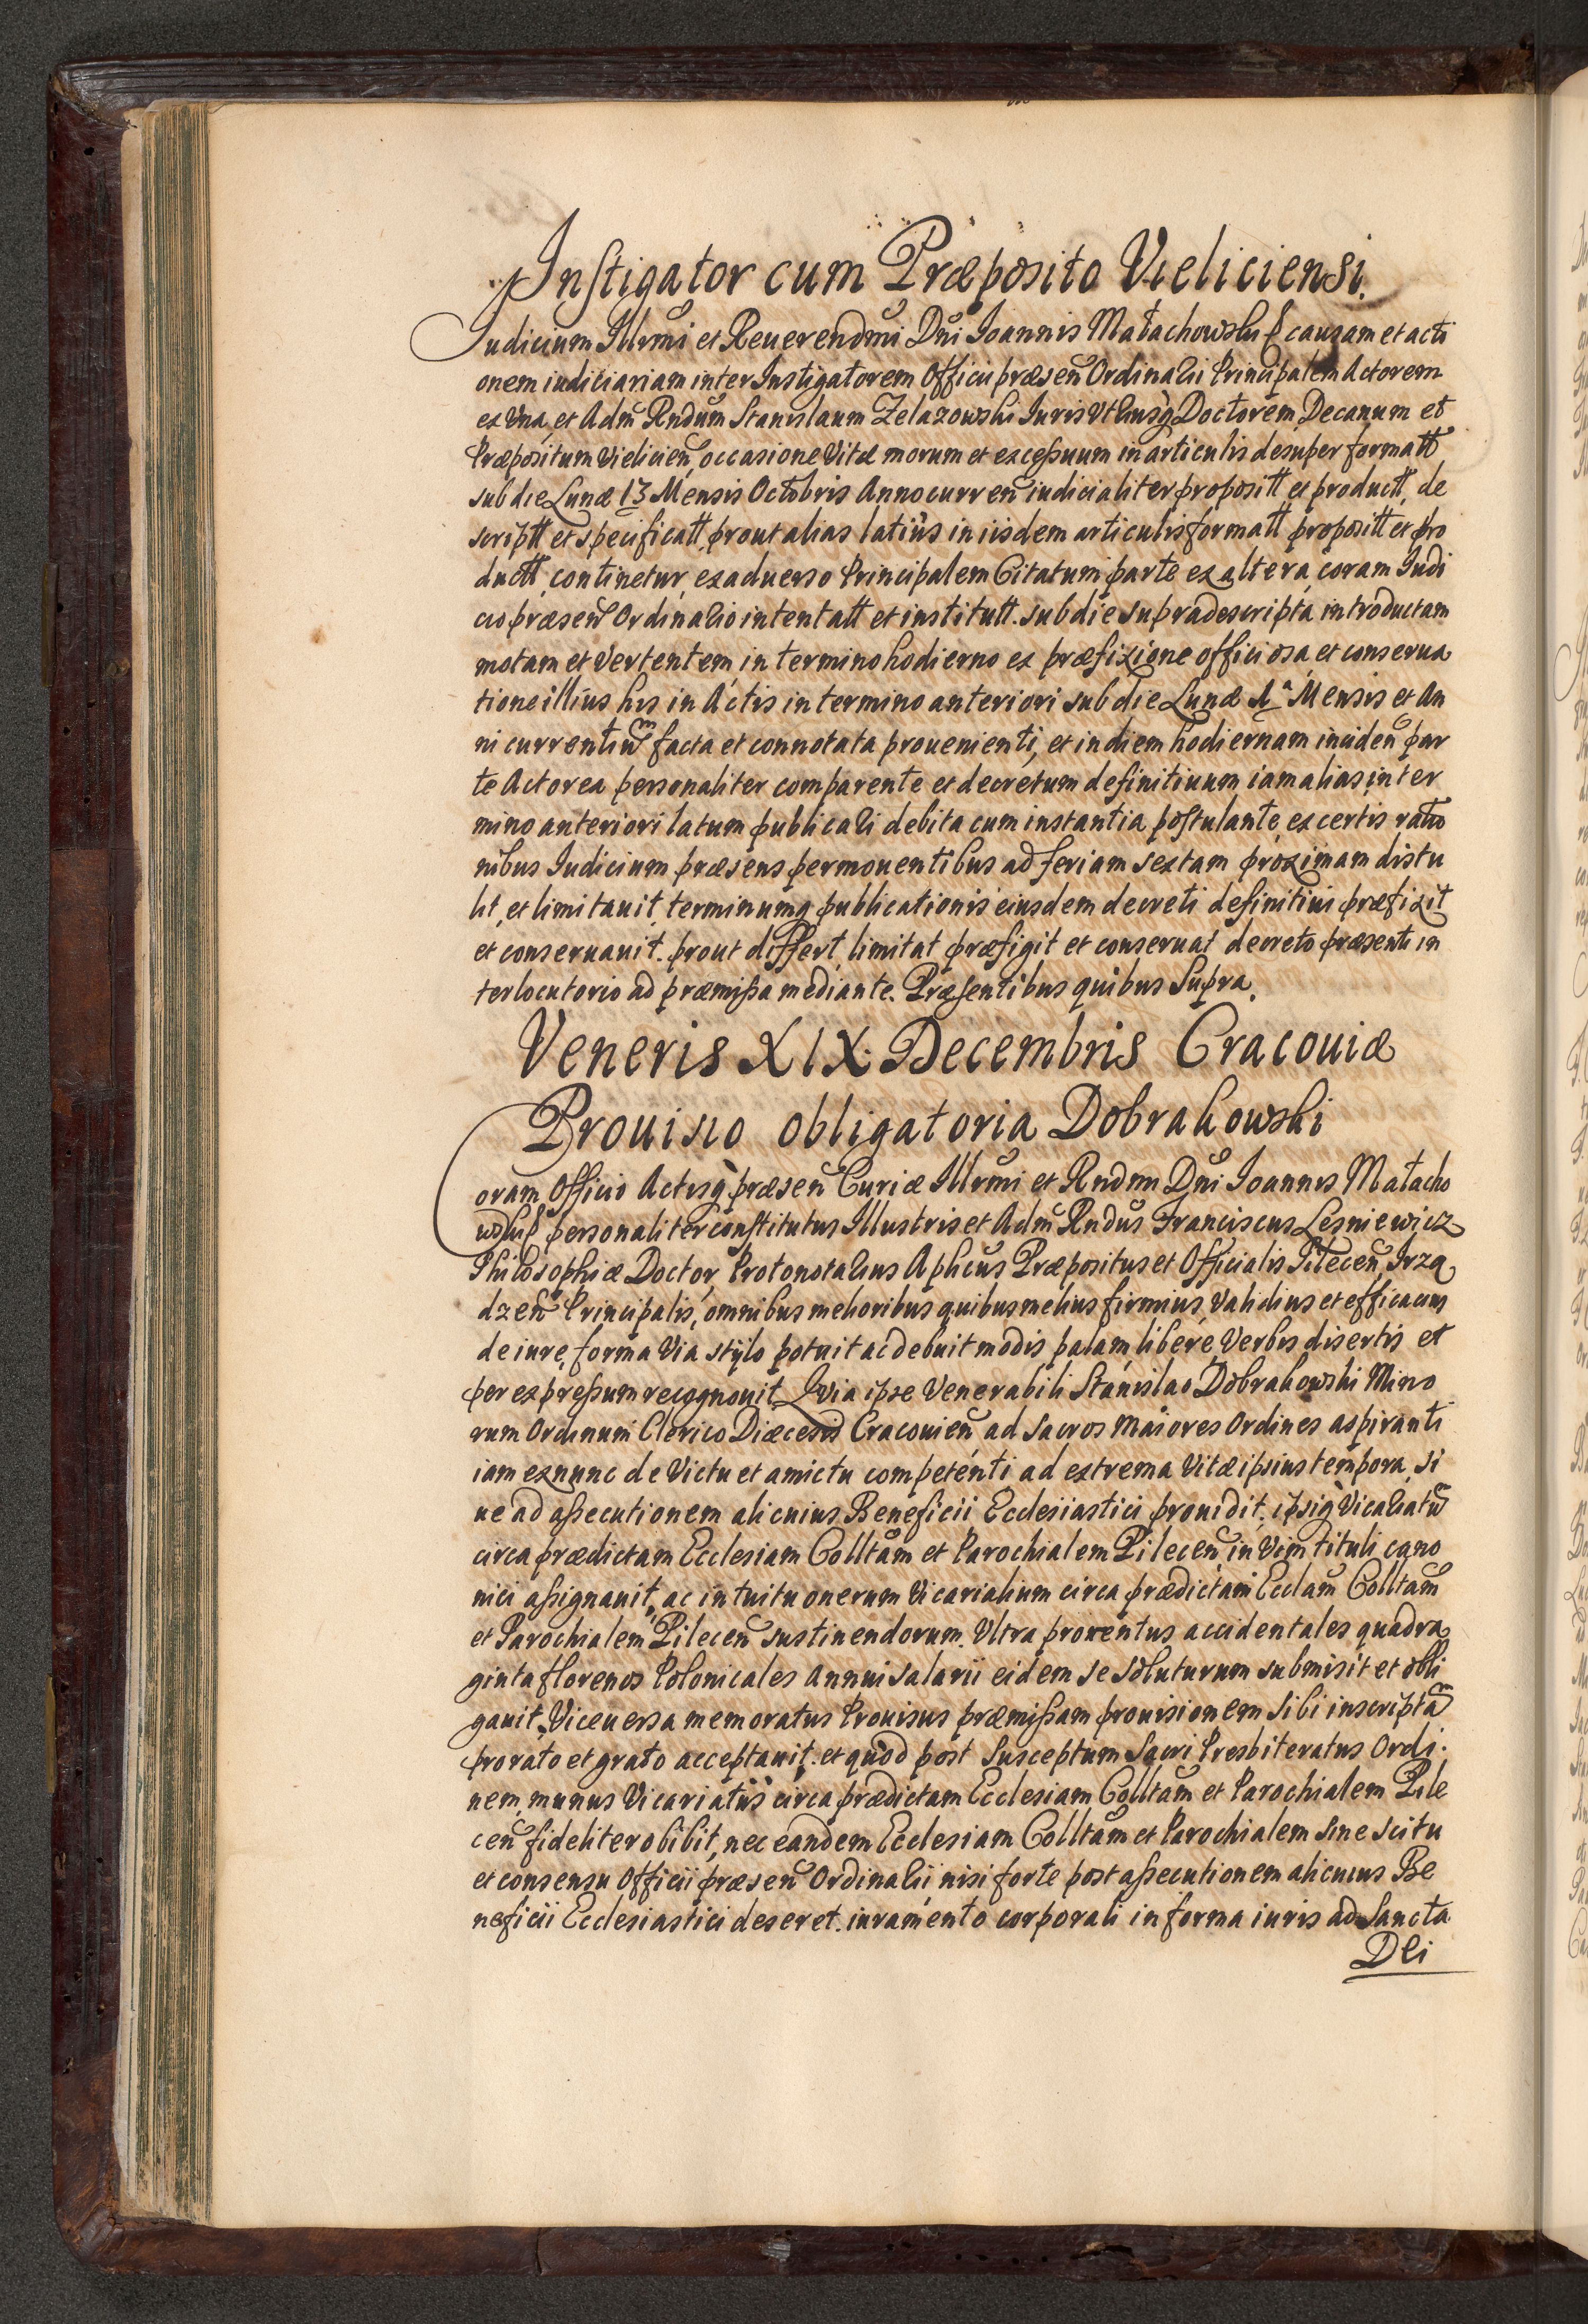 Instigator cum Præposito Vieliciensi.
Iudicium Illrmi et Reuerendmi Dni Ioannis Małachowski causam et acti
onem iudiciariam inter Instigatorem Officii præsen Ordinarii Principalem Actorem
ex Vna, et Adm Rndum Stanislaum Zelazowski Iuris Vtriusq Doctorem, Decanum et
Præpositum Vielicien, occasione Vitæ morum et excessuum in articulis desuper formatt
sub die Lunæ 13 Mensis Octobris Anno curren iudicialiter propositt et productt, de
scriptt et specificatt, prout alias latius in iisdem articulis formatt propositt et pro
ductt, continetur, ex aduerso Principalem Citatum parte ex altera, coram Iudi
cio præsen Ordinario intentatt et institutt. sub die supradescripta, introductam
motam et Vertentem, in termino hodierno ex præfixione officiosa, et conserua
tione illius his in Actis in termino anteriori sub die Lunæ 1a Mensis et An
ni currentium facta et connotata prouenienti, et in diem hodiernam inciden par
te Actorea personaliter comparente et decretum definitiuum iam alias in ter
mino anteriori latum publicari debita cum instantia postulante, ex certis ratio
nibus Iudicium præsens permouentibus ad feriam sextam proximam distu
lit, et limitauit, terminumq publicationis eiusdem decreti definitiui præfixit
et conseruauit. prout differt, limitat præfigit et conseruat decreto præsenti in
terlocutorio ad præmissa mediante. Præsentibus quibus Supra.
Veneris XIX. Decembris Cracouiæ
Prouisio obligatoria Dobrakowski
Coram Officio Actisq præsen Curiæ Illrmi et Rndmi Dni Ioannis Małacho
wski personaliter constitutus Illustris et Adm Rndus Franciscus Lesniewicz
Philosophiæ Doctor, Protonotarius Aplicus Præpositus et Officialis Pilecen, Irzą
dzen Principalis, omnibus melioribus quibus melius firmius, Validius et efficacius
de iure, forma Via stylo potuit ac debuit modis palam libere, Verbis disertis et
per expressum recognouit. Quia ipse Venerabili Stanislao Dobrakowski Mino
rum Ordinum Clerico Diæcesis Cracouien ad Sacros Maiores Ordines aspiranti
iam exnunc de Victu et amictu competenti ad extrema Vitæ ipsius tempora, si
ue ad assecutionem alicuius Beneficii Ecclesiastici prouidit. ipsiq Vicariatum
circa prædictam Ecclesiam Colltam et Parochialem Pilecen, in Vim tituli cano
nici assignauit, ac intuitu onerum Vicarialium circa prædictam Ecclam Colltam
et Parochialem Pilecen sustinendorum. Vltra prouentus accidentales quadra
ginta florenos Polonicales Annui salarii eidem se soluturum submisit et obli
gauit. Viceuersa memoratus Prouisus præmissam prouisionem sibi inscriptam
pro rato et grato acceptauit. et quod post Susceptum Sacri Presbiteratus Ordi.
nem, munus Vicariatus circa prædictam Ecclesiam Colltam et Parochialem Pile
cen fideliter obibit, nec eandem Ecclesiam Colltam et Parochialem sine scitu
et consensu Officii præsen Ordinarii nisi forte post assecutionem alicuius Be
neficii Ecclesiastici deseret. iuramento corporali in forma iuris ad Sancta
Dei